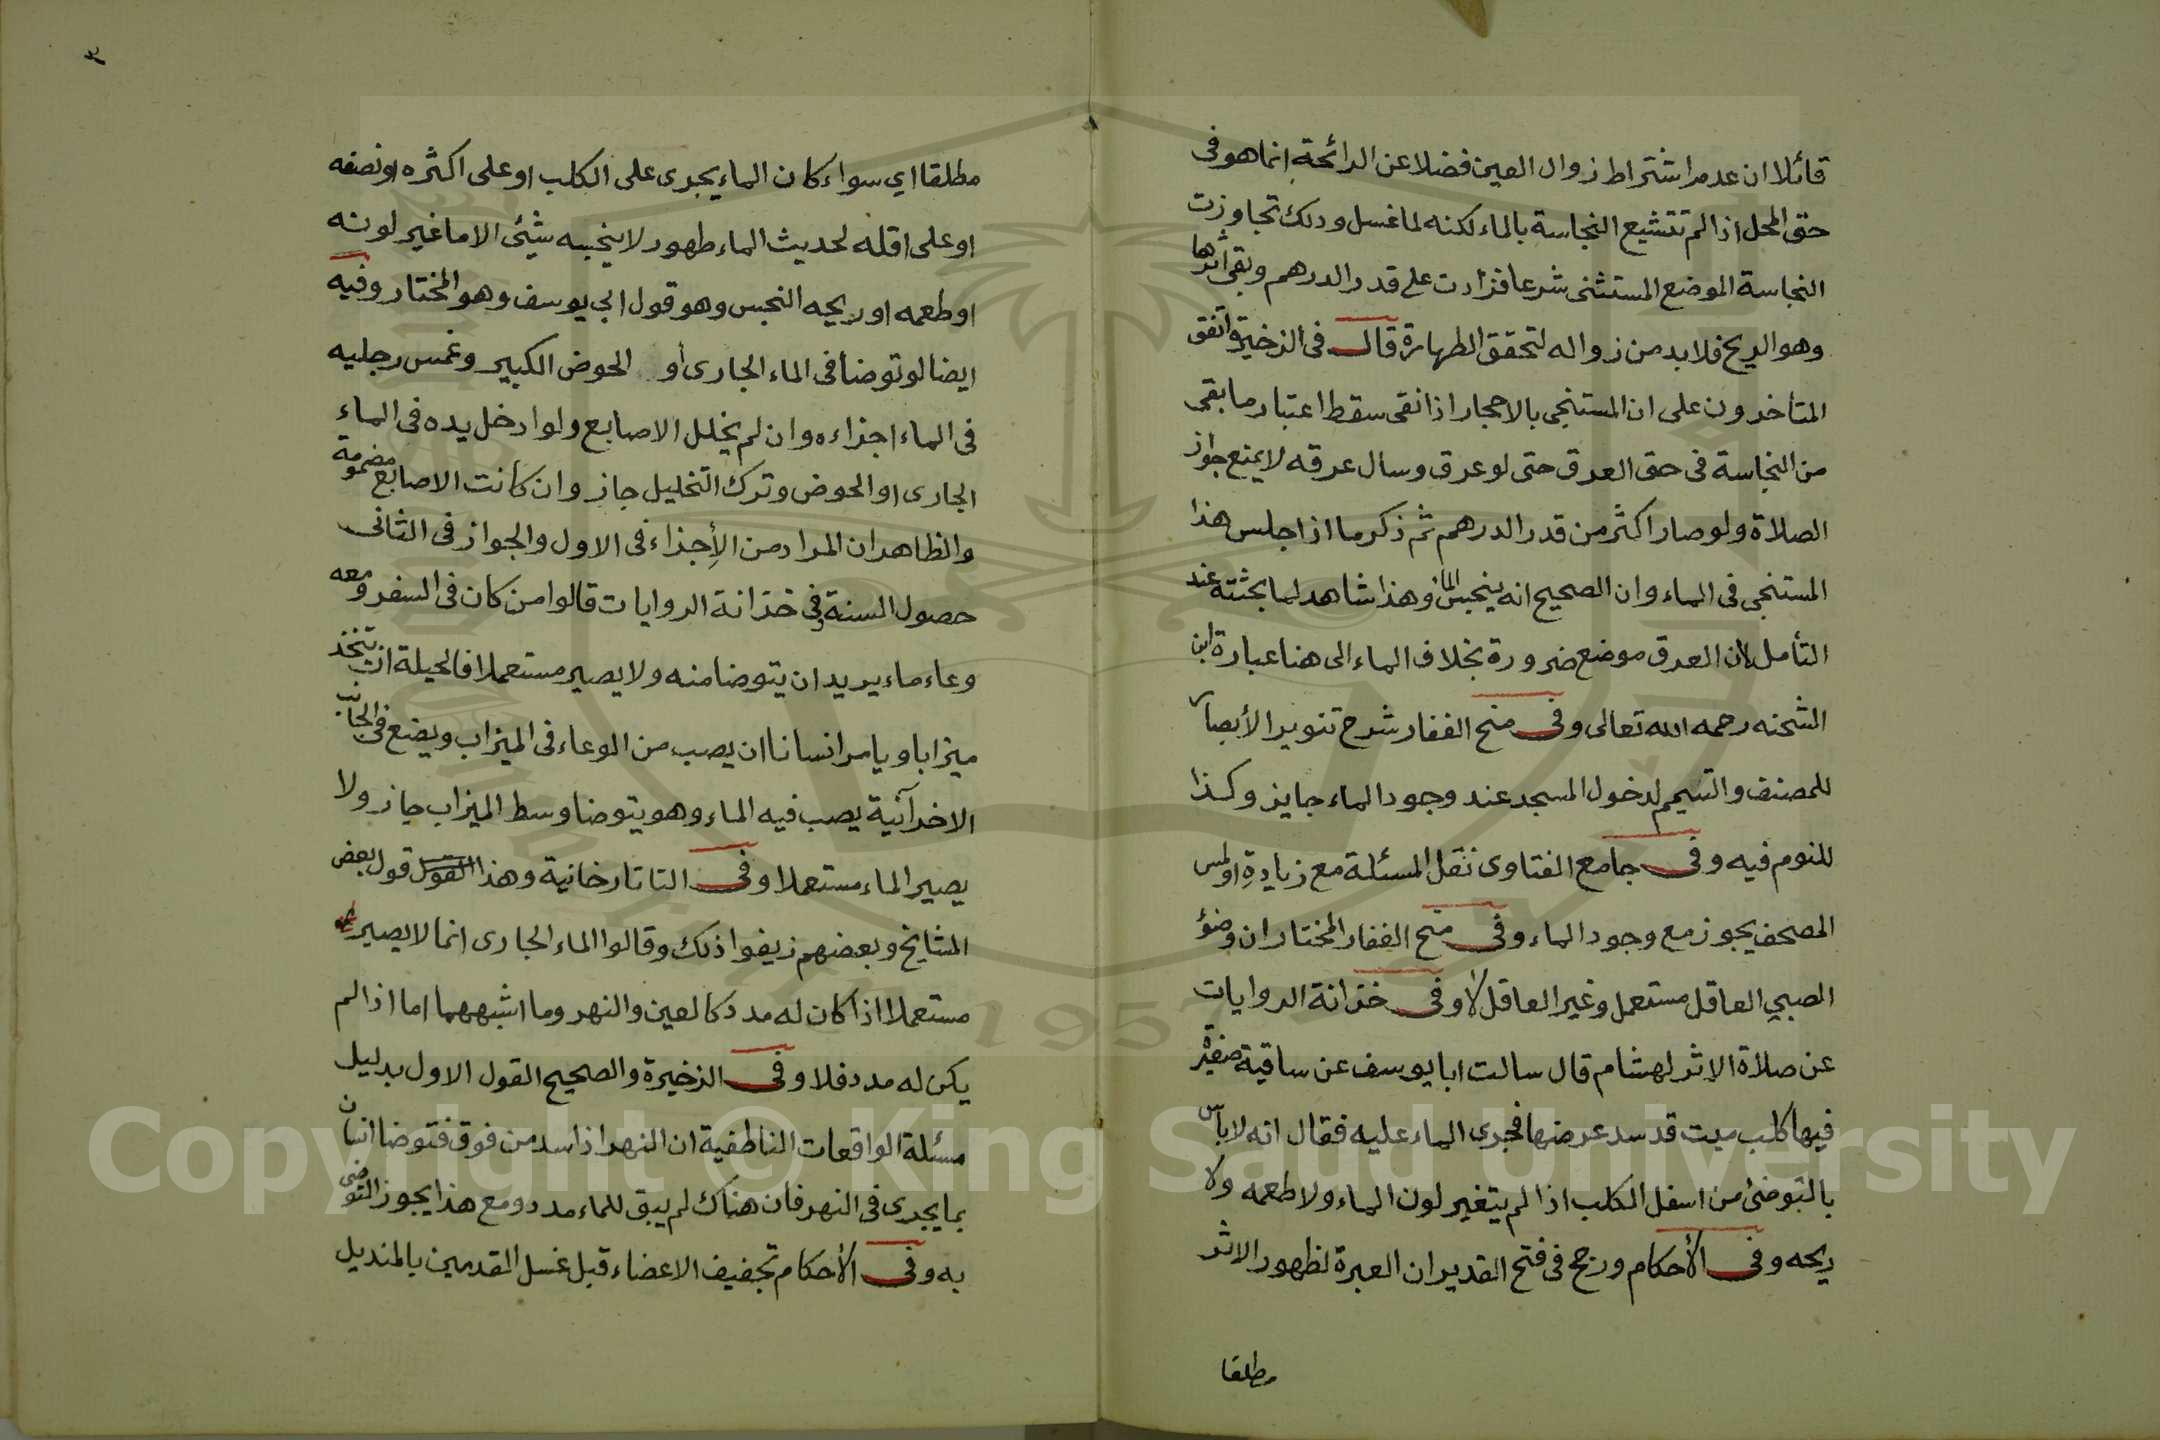 قائلا ان عدم اشتراط زوال العين فضلا عن الرائحة انما هو فى
حق المحل اذا لم تتشيع النجاسة بالماء لكنه لما غسل ودلك تجاوزت
النجاسة الموضع المستثنى شرعا فزادت على قدر الدرهم وبقى اثرها
وهو الريح فلا بد من زواله لتحقق الطهارة قال فى الذخيرة واتفق
المتأخرون على ان المستنجى بالاحجار اذا نقى سقط اعتبار ما بقى
من النجاسة فى حق العرق حتى لو عرق وسال عرقه لا يمنع جواز
الصلاة ولو صار اكثر من قدر الدرهم ثم ذكر ما اذا جلس هذا
المستنجى فى الماء وان الصحيح انه ينجس الماء وهذا شاهد لما بحثته عند
التأمل لان العرق موضع ضرورة بخلاف الماء الى هنا عبارة ابن
الشحنه رحمه الله تعالى وفى منح الغفار شرح تنوير الأبصار
للمصنف والتيمم لدخول المسجد عند وجود الماء جايز وكذا
للنوم فيه وفى جامع الفتاوى نقل المسئلة مع زيادة او لمس
المصحف يجوز مع وجود الماء وفى منح الغفار المختار ان وضؤ
الصبي العاقل مستعمل وغير العاقل لا وفى خزانة الروايات
عن صلاة الاثر لهشام قال سالت ابا يوسف عن ساقية صغيرة
فيها كلب ميت قد سد عرضها فجرى الماء عليه فقال انه لا بأس
بالتوضئ من اسفل الكلب اذا لم يتغير لون الماء ولا طعمه ولا
ريحه وفى الأحكام ورجح فى فتح القدير ان العبرة لظهور الاثر
مطلقا
٣
مطلقا اي سواء كان الماء يجرى على الكلب او على اكثره او نصفه
او على اقله لحديث الماء طهور لا ينجسه شيئ الا ما غير لونه
او طعمه او ريحه النجس وهو قول ابي يوسف وهو المختار وفيه
ايضا لو توضا فى الماء الجارى أو الحوض الكبير وغمس رجليه
فى الماء اجزاءه وان لم يخلل الاصابع ولو ادخل يده فى الماء
الجارى او الحوض وترك التخليل جاز وان كانت الاصابع مضمومة
والظاهر ان المراد من الأجزاء فى الاول والجواز فى الثانى
حصول السنة وفى خزانة الروايات قالوا من كان فى السفر ومعه
وعاء ماء يريد ان يتوضا منه ولا يصير مستعملا فالحيلة ان يتخذ
ميزابا ويامر انسانا ان يصب من الوعاء فى الميزاب ويضع فى الجانب
الاخر آنية يصب فيه الماء وهو يتوضا وسط الميزاب جاز ولا
يصير الماء مستعملا وفى التاتارخانية وهذا القول قول بعض
المشايخ وبعضهم زيفوا ذلك وقالوا الماء الجارى انما لا يصير
مستعملا اذا كان له مدد كالعين والنهر وما اشبههما اما اذا لم
يكن له مدد فلا وفى الذخيرة والصحيح القول الاول بدليل
مسئلة الواقعات الناطفية ان النهر اذا سد من فوق فتوضا انسان
بما يجرى فى النهر فان هناك لم يبق للماء مدد ومع هذا يجوز التوضى
به وفى الأحكام تجفيف الاعضاء قبل غسل القدمين بالمنديل
Copyright © King Saud University
1957